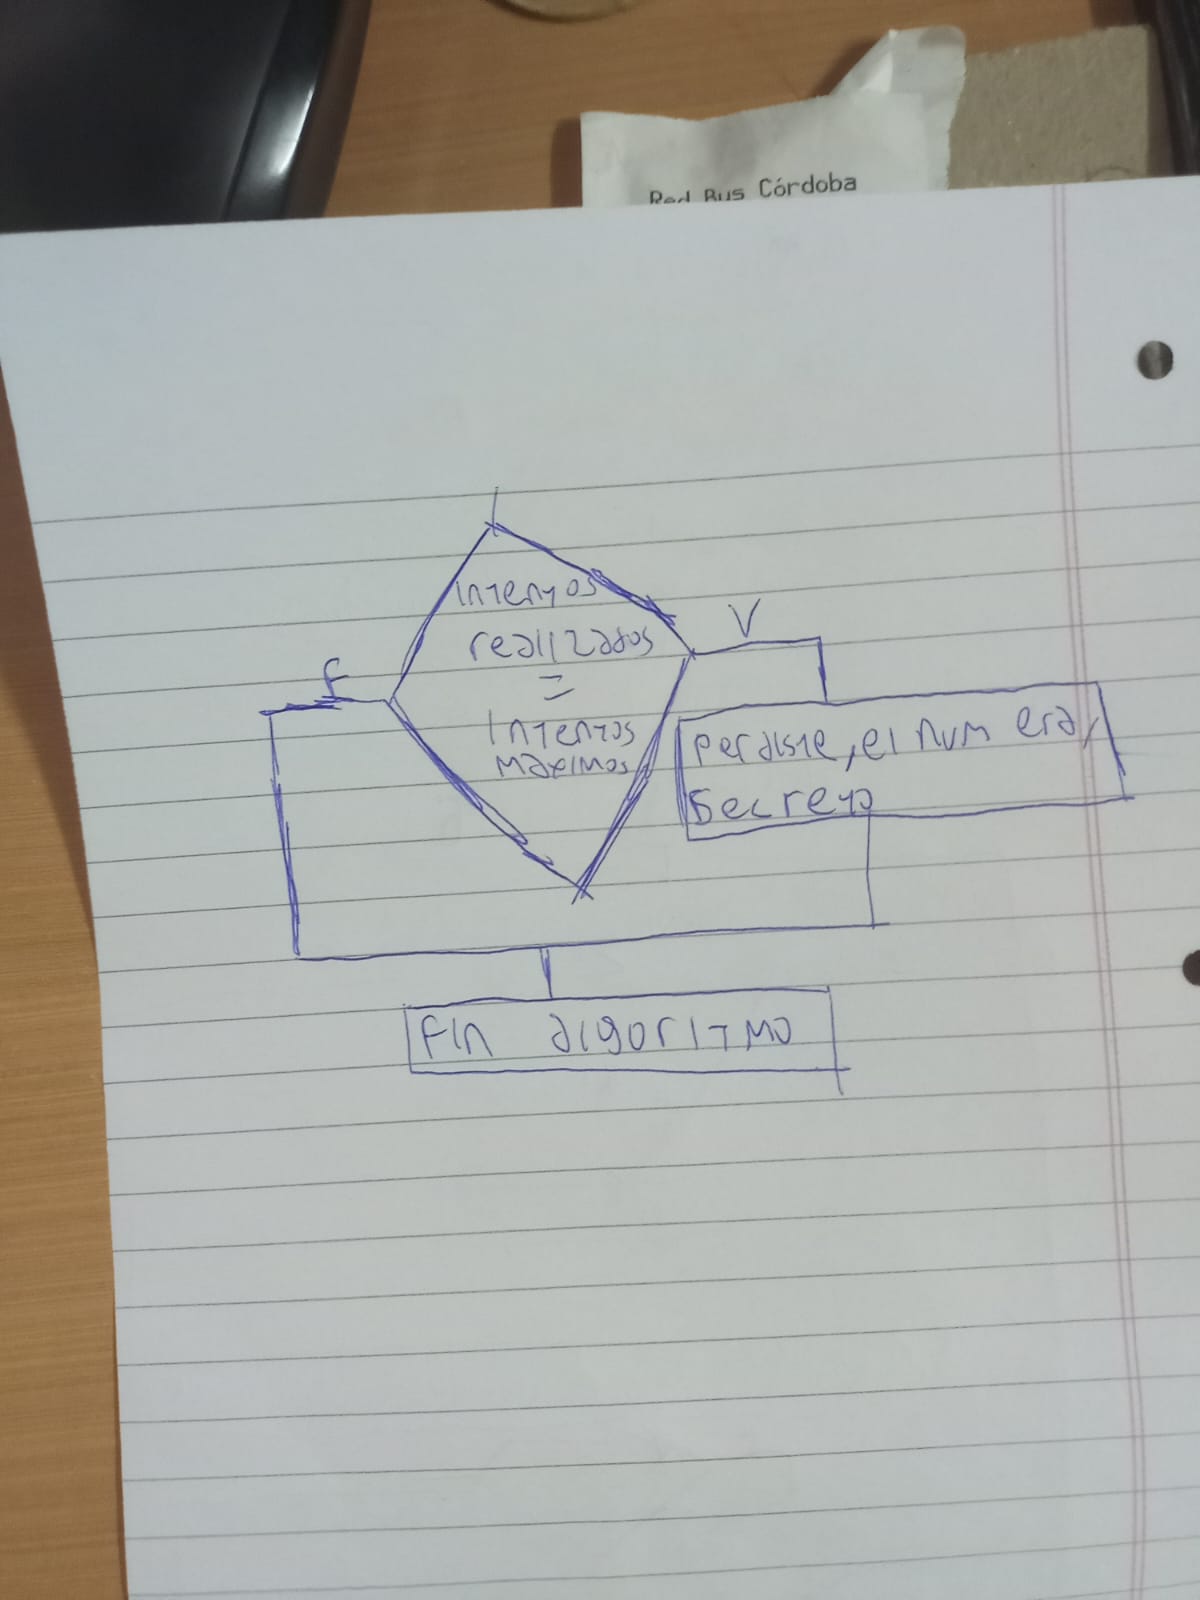 Red Bus Córdoba
Intentos
realizados
=
Intentos
maximos
F
V
Perdiste, el num era,
secreto
Fin algoritmo